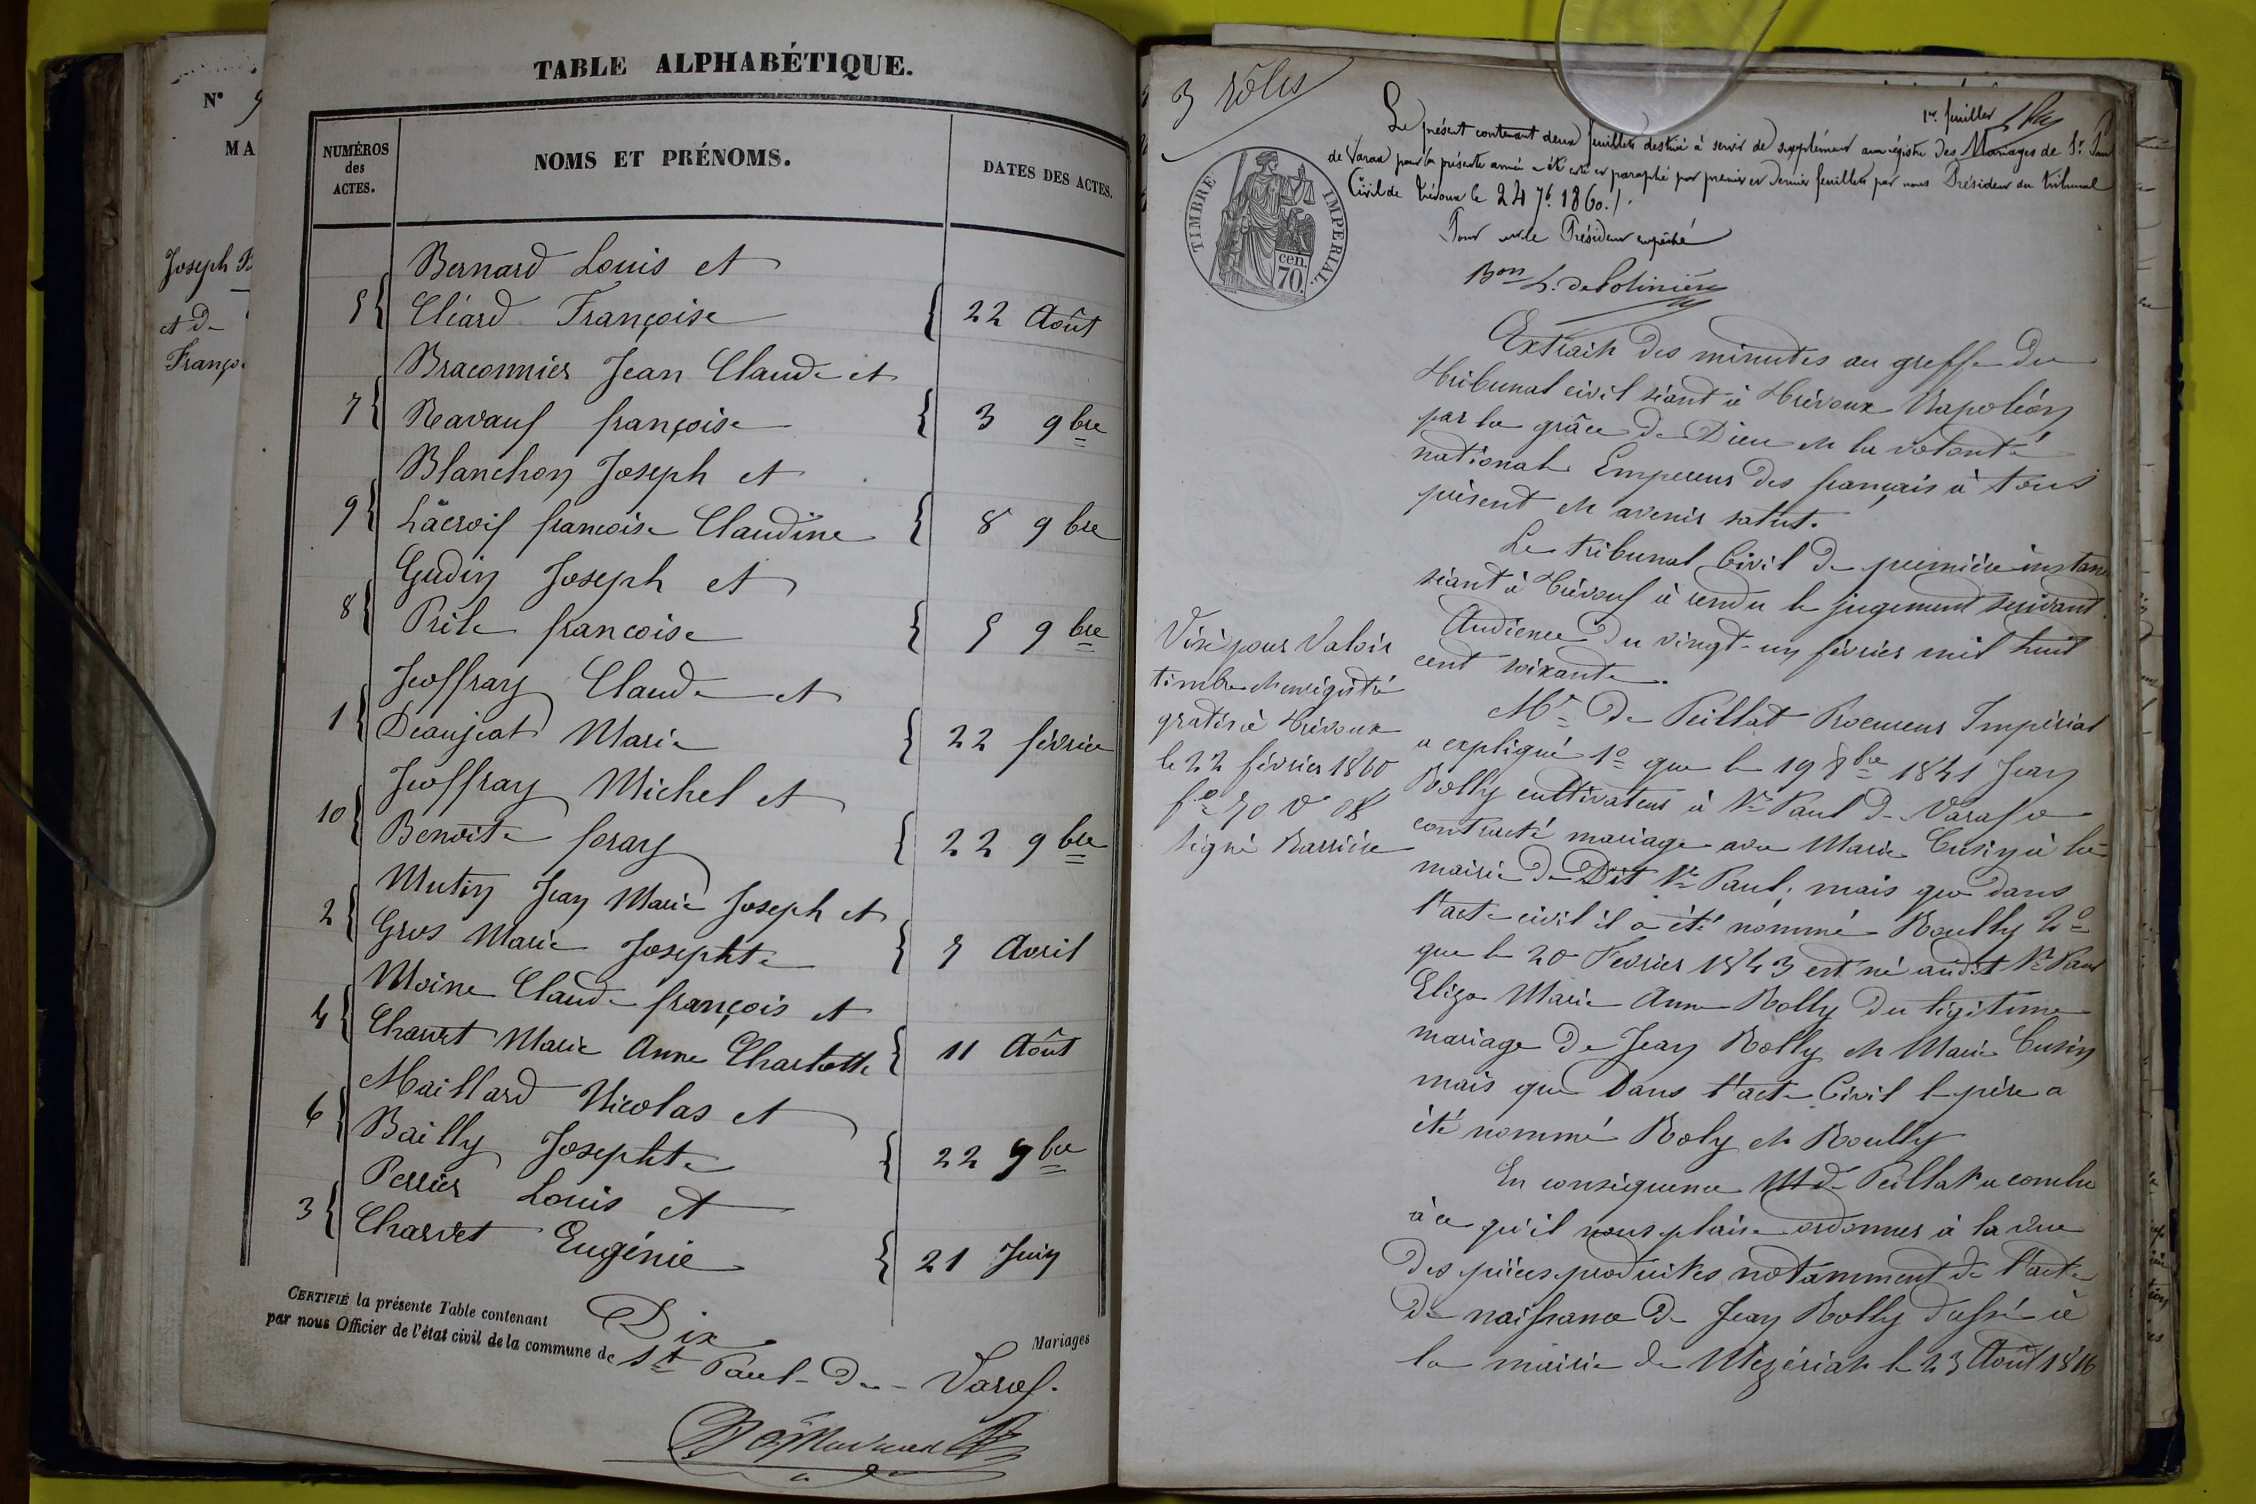 N°
MA
Joseph
et de
TABLE ALPHABÉTIQUE.
NUMÉROS
des
ACTES.
NOMS ET PRÉNOMS.
DATES DES ACTES.
Bernard Louis et
5 { Cléard Françoise { 22 Août
Braconnier Jean Claude et
7 { Ravaux françoise { 3 9bre
Blanchon Joseph et
9 { Lacroix francoise Claudine { 8 9bre
Gudin Joseph et
8 { Prêle francoise { 5 9bre
Jeoffray Claude et
1 { Deaujeat Marie { 22 février
Jeoffray Michel et
10 { Benoite feray { 22 9bre
Mutin Jean Marie Joseph et
2 { Gros Marie Josephte { 5 Avril
Moine Claude françois et
4 { Charvet Marie Anne Charlotte { 11 Août
Maillard Nicolas et
6 { Bailly Josephte { 22 9bre
Perrier Louis et
3 { Charvet Eugénie { 21 Juin
CERTIFIÉ la présente Table contenant Dix Mariages
par nous Officier de l'état civil de la commune de St Paul-de-Varax.
3 Rôles
1er feuillet
Le présent contenant deux feuillets destiné à servir de supplément au régistre des Mariages de St Paul
de Varax pour la présente année a été coté et paraphé par premier et dernier feuillets par nous Président du tribunal
Civil de Trévoux le 24 7b. 1860./.
Pour le Président empêché
Bon L. de Polinière
TIMBRE IMPERIAL.
cen.
70.
Extrait des minutes au greffe du
tribunal civil séant à Trévoux Napoléon
par la grâce de Dieu et la volonté
national Empereur des français à tous
présent et avenir salut.
Le tribunal Civil de première instance
séant à Trévoux à rendu le jugement suivant.
Audience du vingt-un février mil huit
cent soixante.
Mr De Peillat Procureur Impérial
a expliqué 1o que le 19 8bre 1841 Jean
Rolly cultivateur à St Paul de Varax a
contracté mariage avec Marie Cusin à la
mairie de Dit St Paul, mais que dans
l'acte civil il a été nommé Roully 2o
que le 20 Fevrier 1843 est né audit St Paul
Eliza Marie Anne Rolly du légitime
mariage de Jean Rolly et Marie Cusin
mais que Dans l'acte Civil le père a
été nommé Roly et Roully
En conséquence M de Peillat a conclu
à ce qu'il nous plaise ordonner à la vue
des pièces produites notamment de l'acte
de naissance de Jean Rolly dressé à
la mairie de Mézériat le 23 Août 1816
Visé pour Valoir
timbre et enrégistré
gratis à Trévoux
le 22 février 1860
fo 50 Vo
Signé Barrière